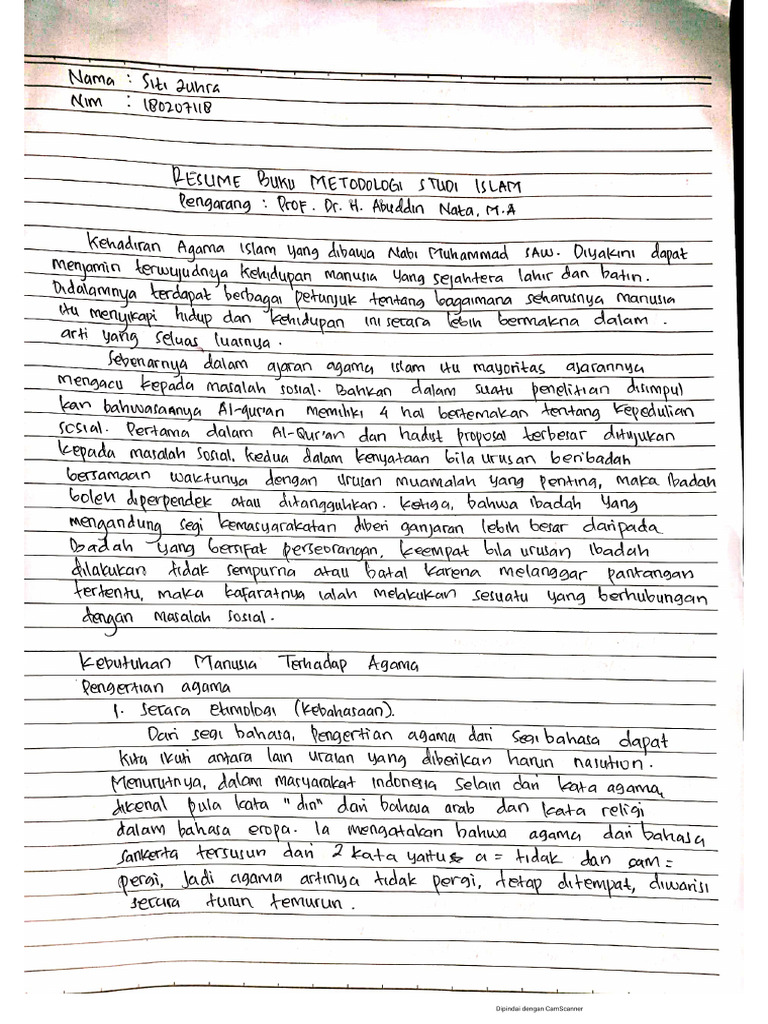 Nama : Siti Zuhra
Nim : 180207118
RESUME BUKU METODOLOGI STUDI ISLAM
Pengarang : Prof. Dr. H. Abuddin Nata, M.A
Kehadiran Agama Islam yang dibawa Nabi Muhammad SAW. Diyakini dapat
menjamin terwujudnya kehidupan manusia yang sejahtera lahir dan batin.
Didalamnya terdapat berbagai petunjuk tentang bagaimana seharusnya manusia
itu menyikapi hidup dan kehidupan ini secara lebih bermakna dalam .
arti yang seluas luasnya .
Sebenarnya dalam ajaran agama Islam itu mayoritas ajarannya
mengacu kepada masalah sosial. Bahkan dalam suatu penelitian disimpul
kan bahwasaannya Al-qur'an memiliki 4 hal bertemakan tentang kepedulian
sosial. Pertama dalam Al-Qur'an dan hadist proposal terbesar ditujukan
kepada masalah sosial. kedua dalam kenyataan bila urusan beribadah
bersamaan waktunya dengan urusan muamalah yang penting, maka ibadah
boleh diperpendek atau ditangguhkan. ketiga, bahwa ibadah yang
mengandung segi kemasyarakatan diberi ganjaran lebih besar daripada
ibadah yang bersifat perseorangan, keempat bila urusan ibadah
dilakukan tidak sempurna atau batal karena melanggar pantangan
tertentu, maka kafaratnya ialah melakukan sesuatu yang berhubungan
dengan masalah sosial.
Kebutuhan Manusia Terhadap Agama
Pengertian agama
1. Secara etimologi (kebahasaan).
Dari segi bahasa, pengertian agama dari segi bahasa dapat
kita ikuti antara lain uraian yang diberikan harun nasution.
Menurutnya, dalam masyarakat indonesia selain dari kata agama,
dikenal pula kata "din" dari bahasa arab dan kata religi
dalam bahasa eropa. Ia mengatakan bahwa agama dari bahasa
sankerta tersusun dari 2 kata yaitu a = tidak dan gam =
pergi, Jadi agama artinya tidak pergi, tetap ditempat, diwarisi
secara turun temurun .
Dipindai dengan CamScanner